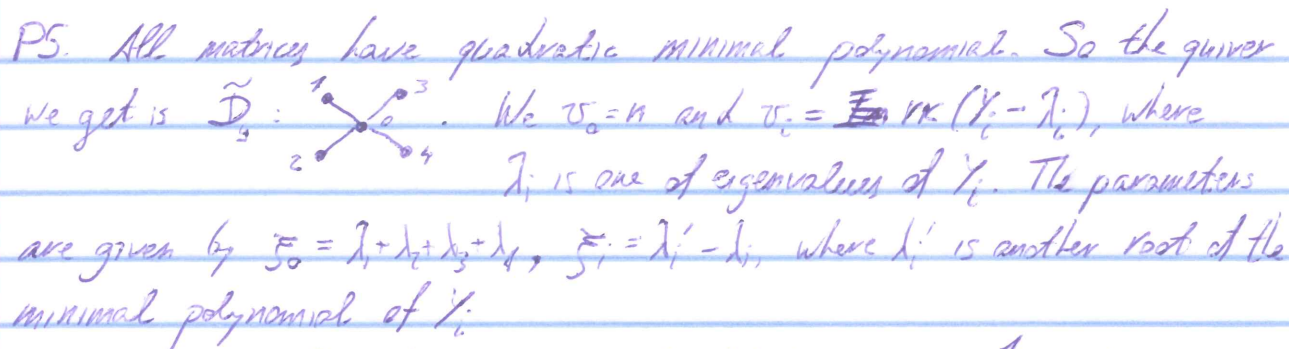 P5. All matrices have quadratic minimal polynomial. So the quiver
we get is D̃₄: 1 2 3 4 0. We v₀=n and vᵢ = rk (Yᵢ-λᵢ), where
λᵢ is one of eigenvalues of Yᵢ. The parameters
are given by ξ₀ = λ₁+λ₂+λ₃+λ₄, ξᵢ = λᵢ'-λᵢ, where λᵢ' is another root of the
minimal polynomial of Yᵢ